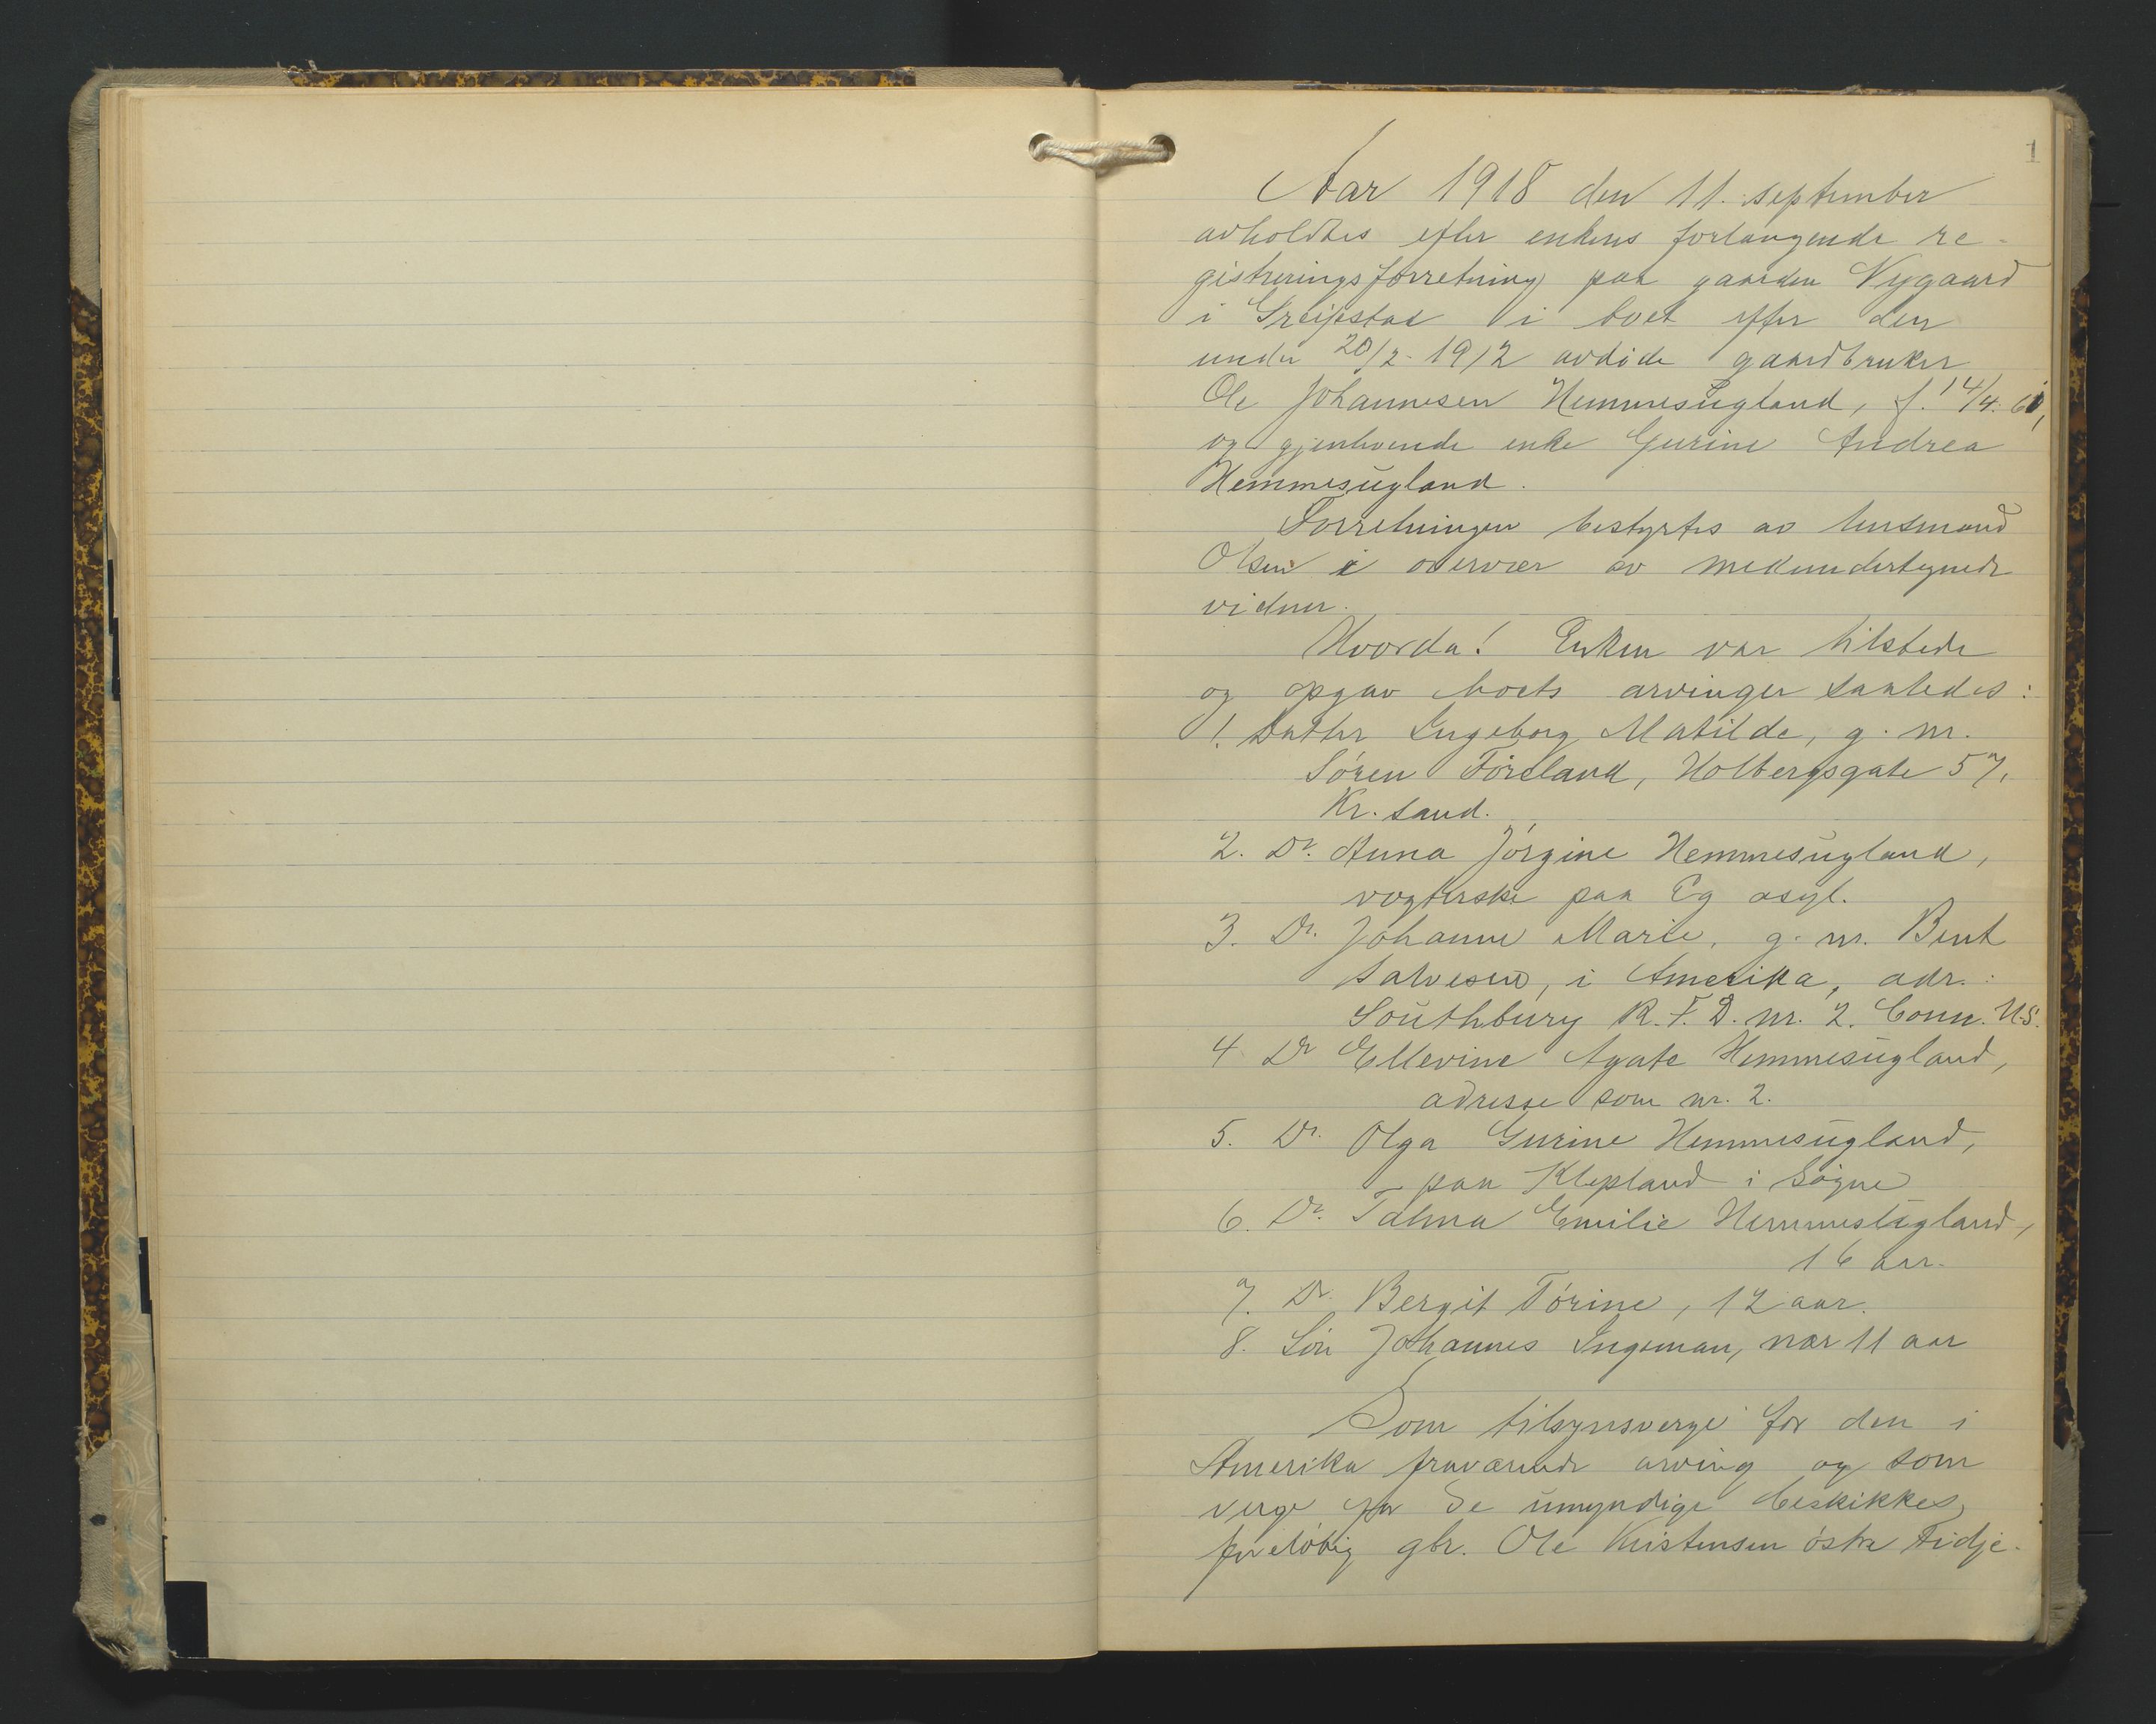 1
Aar 1918 den 11. september
avholdtes efter enkens forlangende re-
gistreringsforretning paa gaarden Nygaard
i Greipstad i boet efter den
under 20/2-1912 avdøde gaardbruker
Ole Johannesen Hemmesugland, f. 14/4.
og gjenlevende enke Gurine Andrea
Hemmesugland.
Forretningen bestyrtes av lensmand
Olsen i overvær av medundertegnede
vidner.
Hvorda! Enken var tilstede
og opgav boets arvinger saaledes:
1. Datter Ingeborg Matilde, g. m.
SørenFørsland, Holbergsgate 57,
Kr.sand.
2. Dr. Anna Jørgine Hemmesugland,
vogterske paa Eg asyl.
3. Dr. Johanne Marie, g. m. Bent
Salvesen, i Amerika, adr.:
Southbury R.F.D. nr. 2. Conn. U.S.
4 Dr Ellevine Agate Hemmesugland,
adresse som nr. 2.
5. Dr. Olga Gurine Hemmesugland,
paa Klepland i Søgne
6. Dr. Talma Emilie Hemmesugland,
16 aar.
7. Dr. Bergit Tørine, 12 aar.
8. Søn Johannes Ingeman, nær 11 aar
Som tilsynsverge for den i
Amerika fraværende arving og som
verge for de umyndige beskikkes
foreløbig gbr. Ole Kristensen østre Fidje.